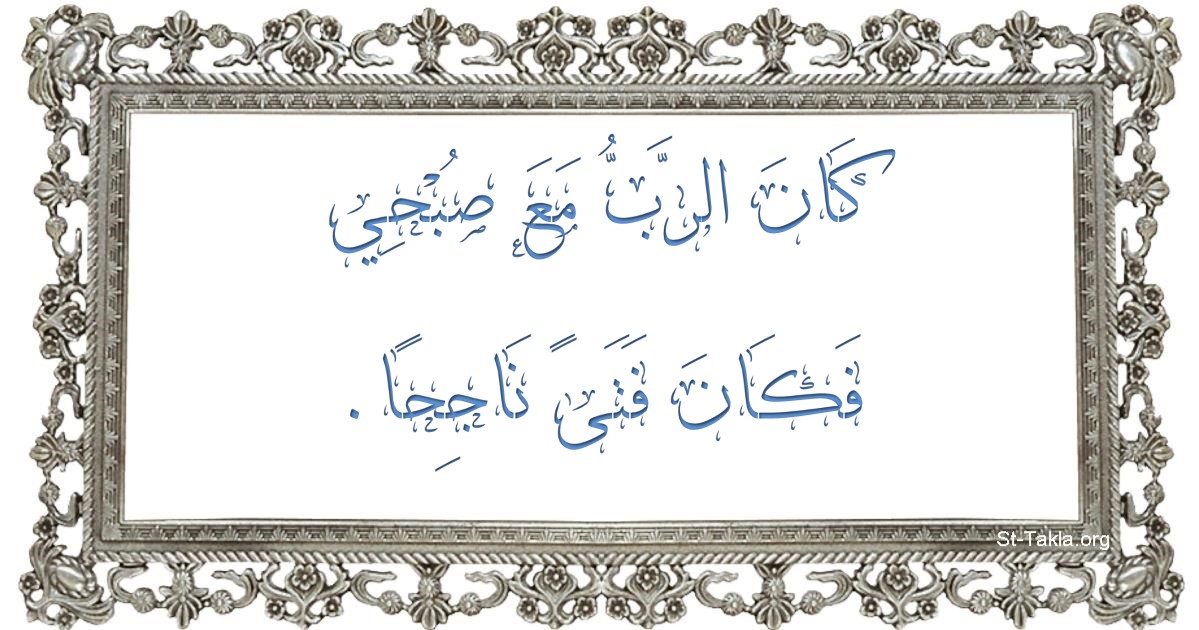 كَانَ الرَّبُّ مَعَ صُبْحِي
فَكَانَ فَتَىً نَاجِحًا.
St-Takla.org